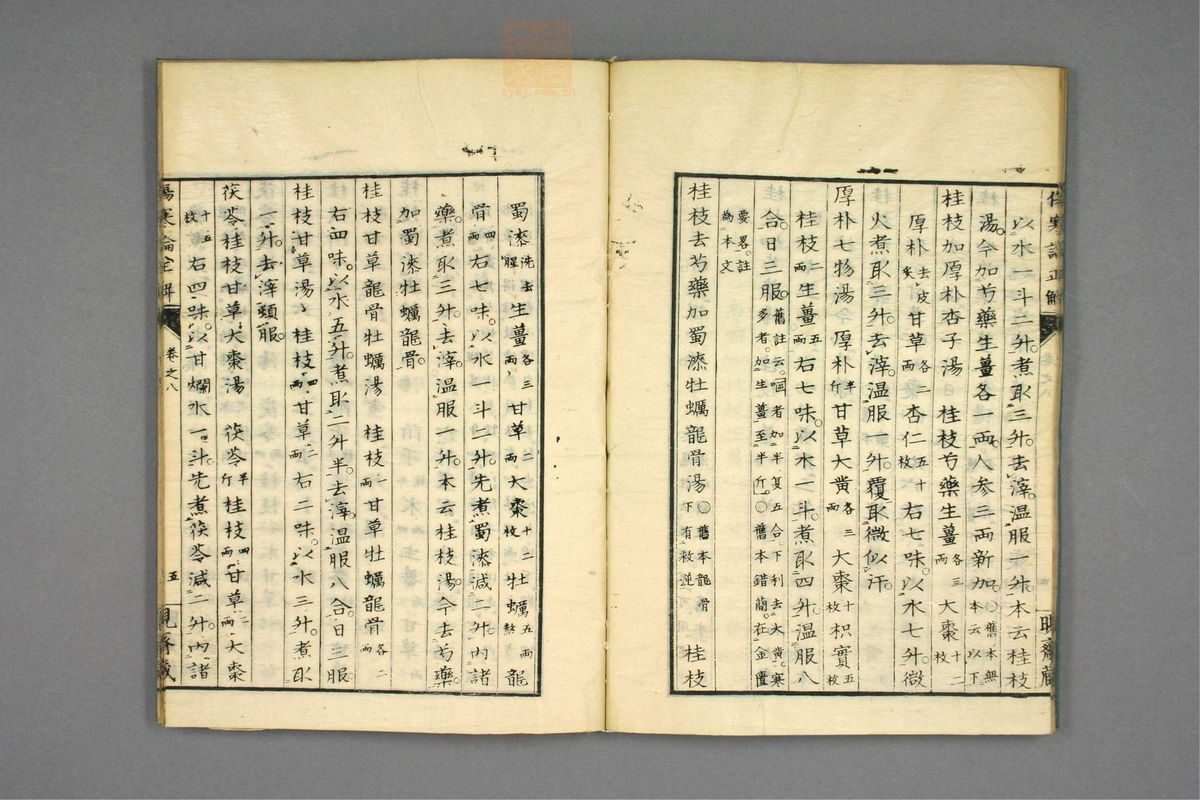 以水一斗二升煮取三升去滓温服一升本云桂枝
湯今加芍藥生薑各一兩人参三兩新加〇舊本無本云以下
桂枝加厚朴杏子湯 桂枝芍藥生薑各三兩大棗十二枚
厚朴去皮炙甘草各二兩杏仁五十枚右七味以水七升微
火煮取三升去滓温服一升覆取微似汗
厚朴七物湯 厚朴半斤甘草大黃各三兩大棗十枚枳實五枚
桂枝二兩生薑五兩右七味以水一斗煮取四升温服八
合日三服舊註云嘔者加半夏五合下利去大黃寒多者加生薑至半斤〇舊本錯簡在金匱
要畧註為本文
桂枝去芍藥加蜀漆牡蠣龍骨湯〇舊本龍骨下有救逆 桂枝
蜀漆洗去腥生薑各三兩甘草二兩大棗十二枚牡蠣五兩熬龍
骨四兩右七味以水一斗二升先煮蜀漆減二升內諸
藥煮取三升去滓温服一升本云桂枝湯今去芍藥
加蜀漆牡蠣龍骨
桂枝甘草龍骨牡蠣湯 桂枝一兩甘草牡蠣龍骨各二兩
右四味以水五升煮取二升半去滓温服八合日三服
桂枝甘草湯 桂枝四兩甘草二兩右二味以水三升煮取
一升去滓頓服
茯苓桂枝甘草大棗湯 茯苓半斤桂枝四兩甘草二兩大棗
十五枚右四味以甘爛水一斗先煮茯苓減二升內諸
卷之八
五